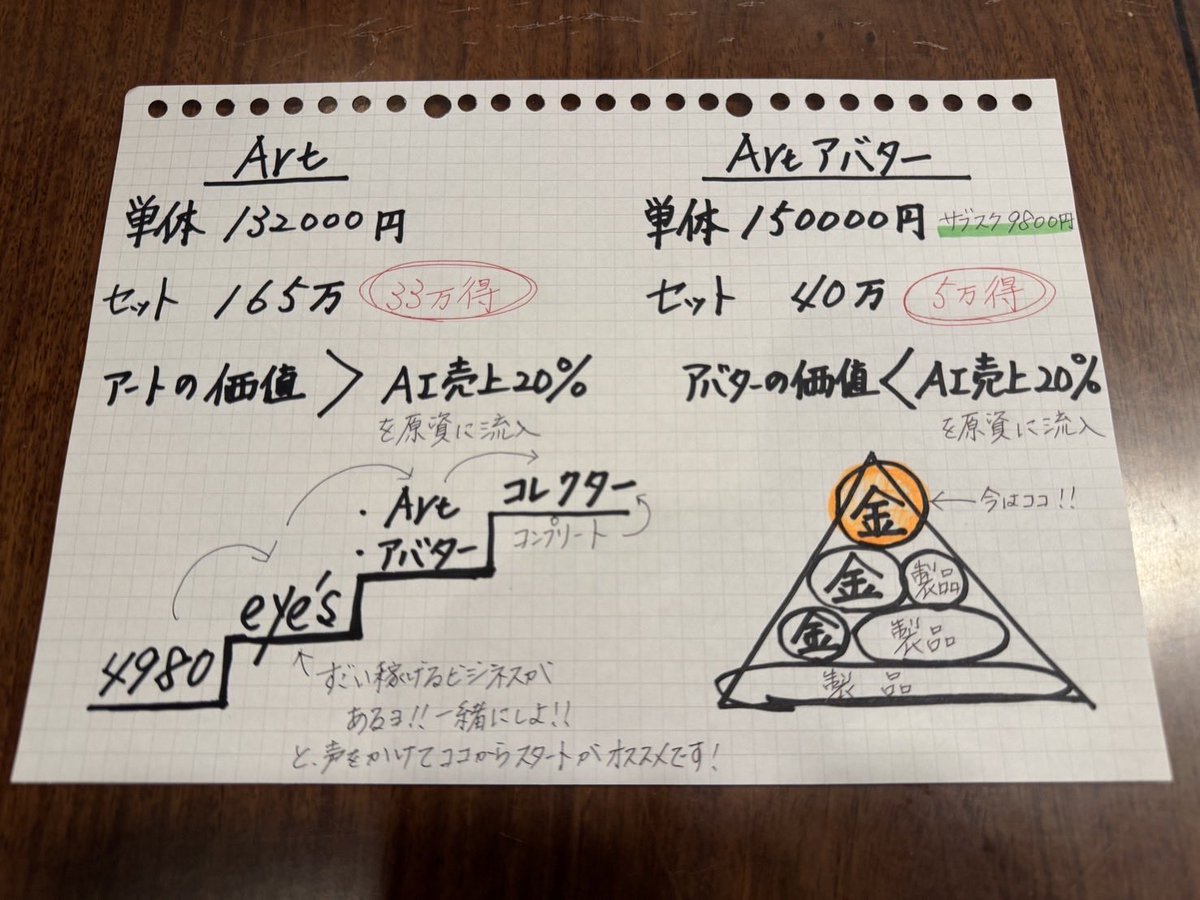 Art
単体 132000円
セット 165万 33万得
アートの価値 > AI売上20%
を原資に流入
Artアバター
単体 150000円 サブスク9800円
セット 40万 5万得
アバターの価値 < AI売上20%
を原資に流入
4980
eye's
・Art
・アバター
コレクター
コンプリート
すごい稼げるビジネスが
あるヨ!!一緒にしよ!!
と、声をかけてココからスタートがオススメです!
金 ← 今はココ!!
金 製品
金 製品
製品